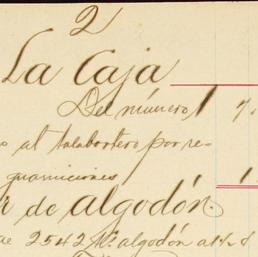 2
La Caja
Del número 1 7.
o al talabartero por re-
guarniciones 1
r de algodón.
de 2542 Ms. algodón al